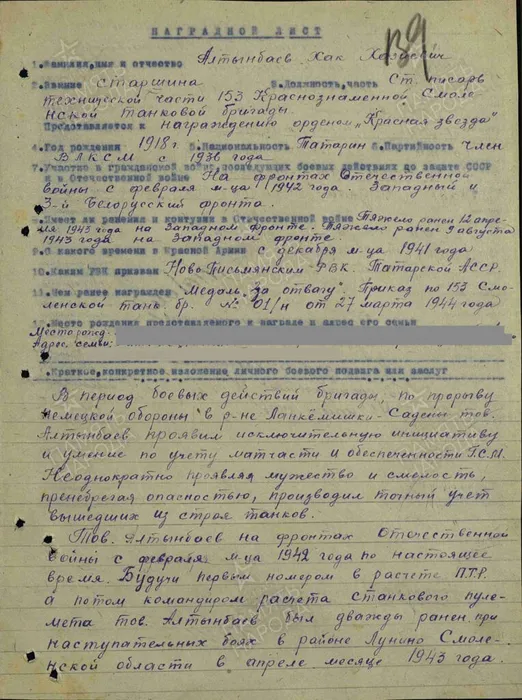 139
НАГРАДНОЙ ЛИСТ
1. Фамилия, имя и отчество Алтынбаев Хак
2. Звание старшина 3. Должность, часть Ст. писарь
технической части 153 Краснознаменной Смоле-
нской танковой бригады
Представляется к награждению орденом „Красная звезда"
4. Год рождения 1918 г. 5. Национальность Татарин 6. Партийность член
ВЛКСМ с 1936 года
7. Участие в гражданской войне, последующих боевых действиях по защите СССР
и в Отечественной войне На фронтах Отечественной
войны с февраля м-ца 1942 года. Западный и
3-й Белорусский фронта.
8. Имеет ли ранения и контузии в Отечественной войне Тяжело ранен 12 апре-
ля 1943 года на Западном фронте. Тяжело ранен 9 августа
1943 года на Западном фронте
9. С какого времени в Красной Армии с декабря м-ца 1941 года
10. Каким РВК призван Ново-Письмянским РВК. Татарской АССР.
11. Чем ранее награжден Медаль „За отвагу". Приказ по 153 Смо-
ленской танк. бр. № 01/н от 27 марта 1944 года
12. Место рождения представляемого к награде и адрес его семьи
Место рожд.
Адрес семьи:
Краткое, конкретное изложение личного боевого подвига или заслуг
В период боевых действий бригады, по прорыву
немецкой обороны в р-не Ланкемишки - Садены тов.
Алтынбаев проявил исключительную инициативу
и умение по учету матчасти и обеспеченности Г.С.М.
Неоднократно проявляя мужество и смелость,
пренебрегая опасностью, производил точный учет
вышедших из строя танков.
Тов. Алтынбаев на фронтах Отечественной
войны с февраля м-ца 1942 года по настоящее
время. Будучи первым номером в расчете П.Т.Р.
а потом командиром расчета станкового пуле-
мета тов. Алтынбаев был дважды ранен при
наступательных боях в районе Лунино Смоле-
нской области в апреле месяце 1943 года.